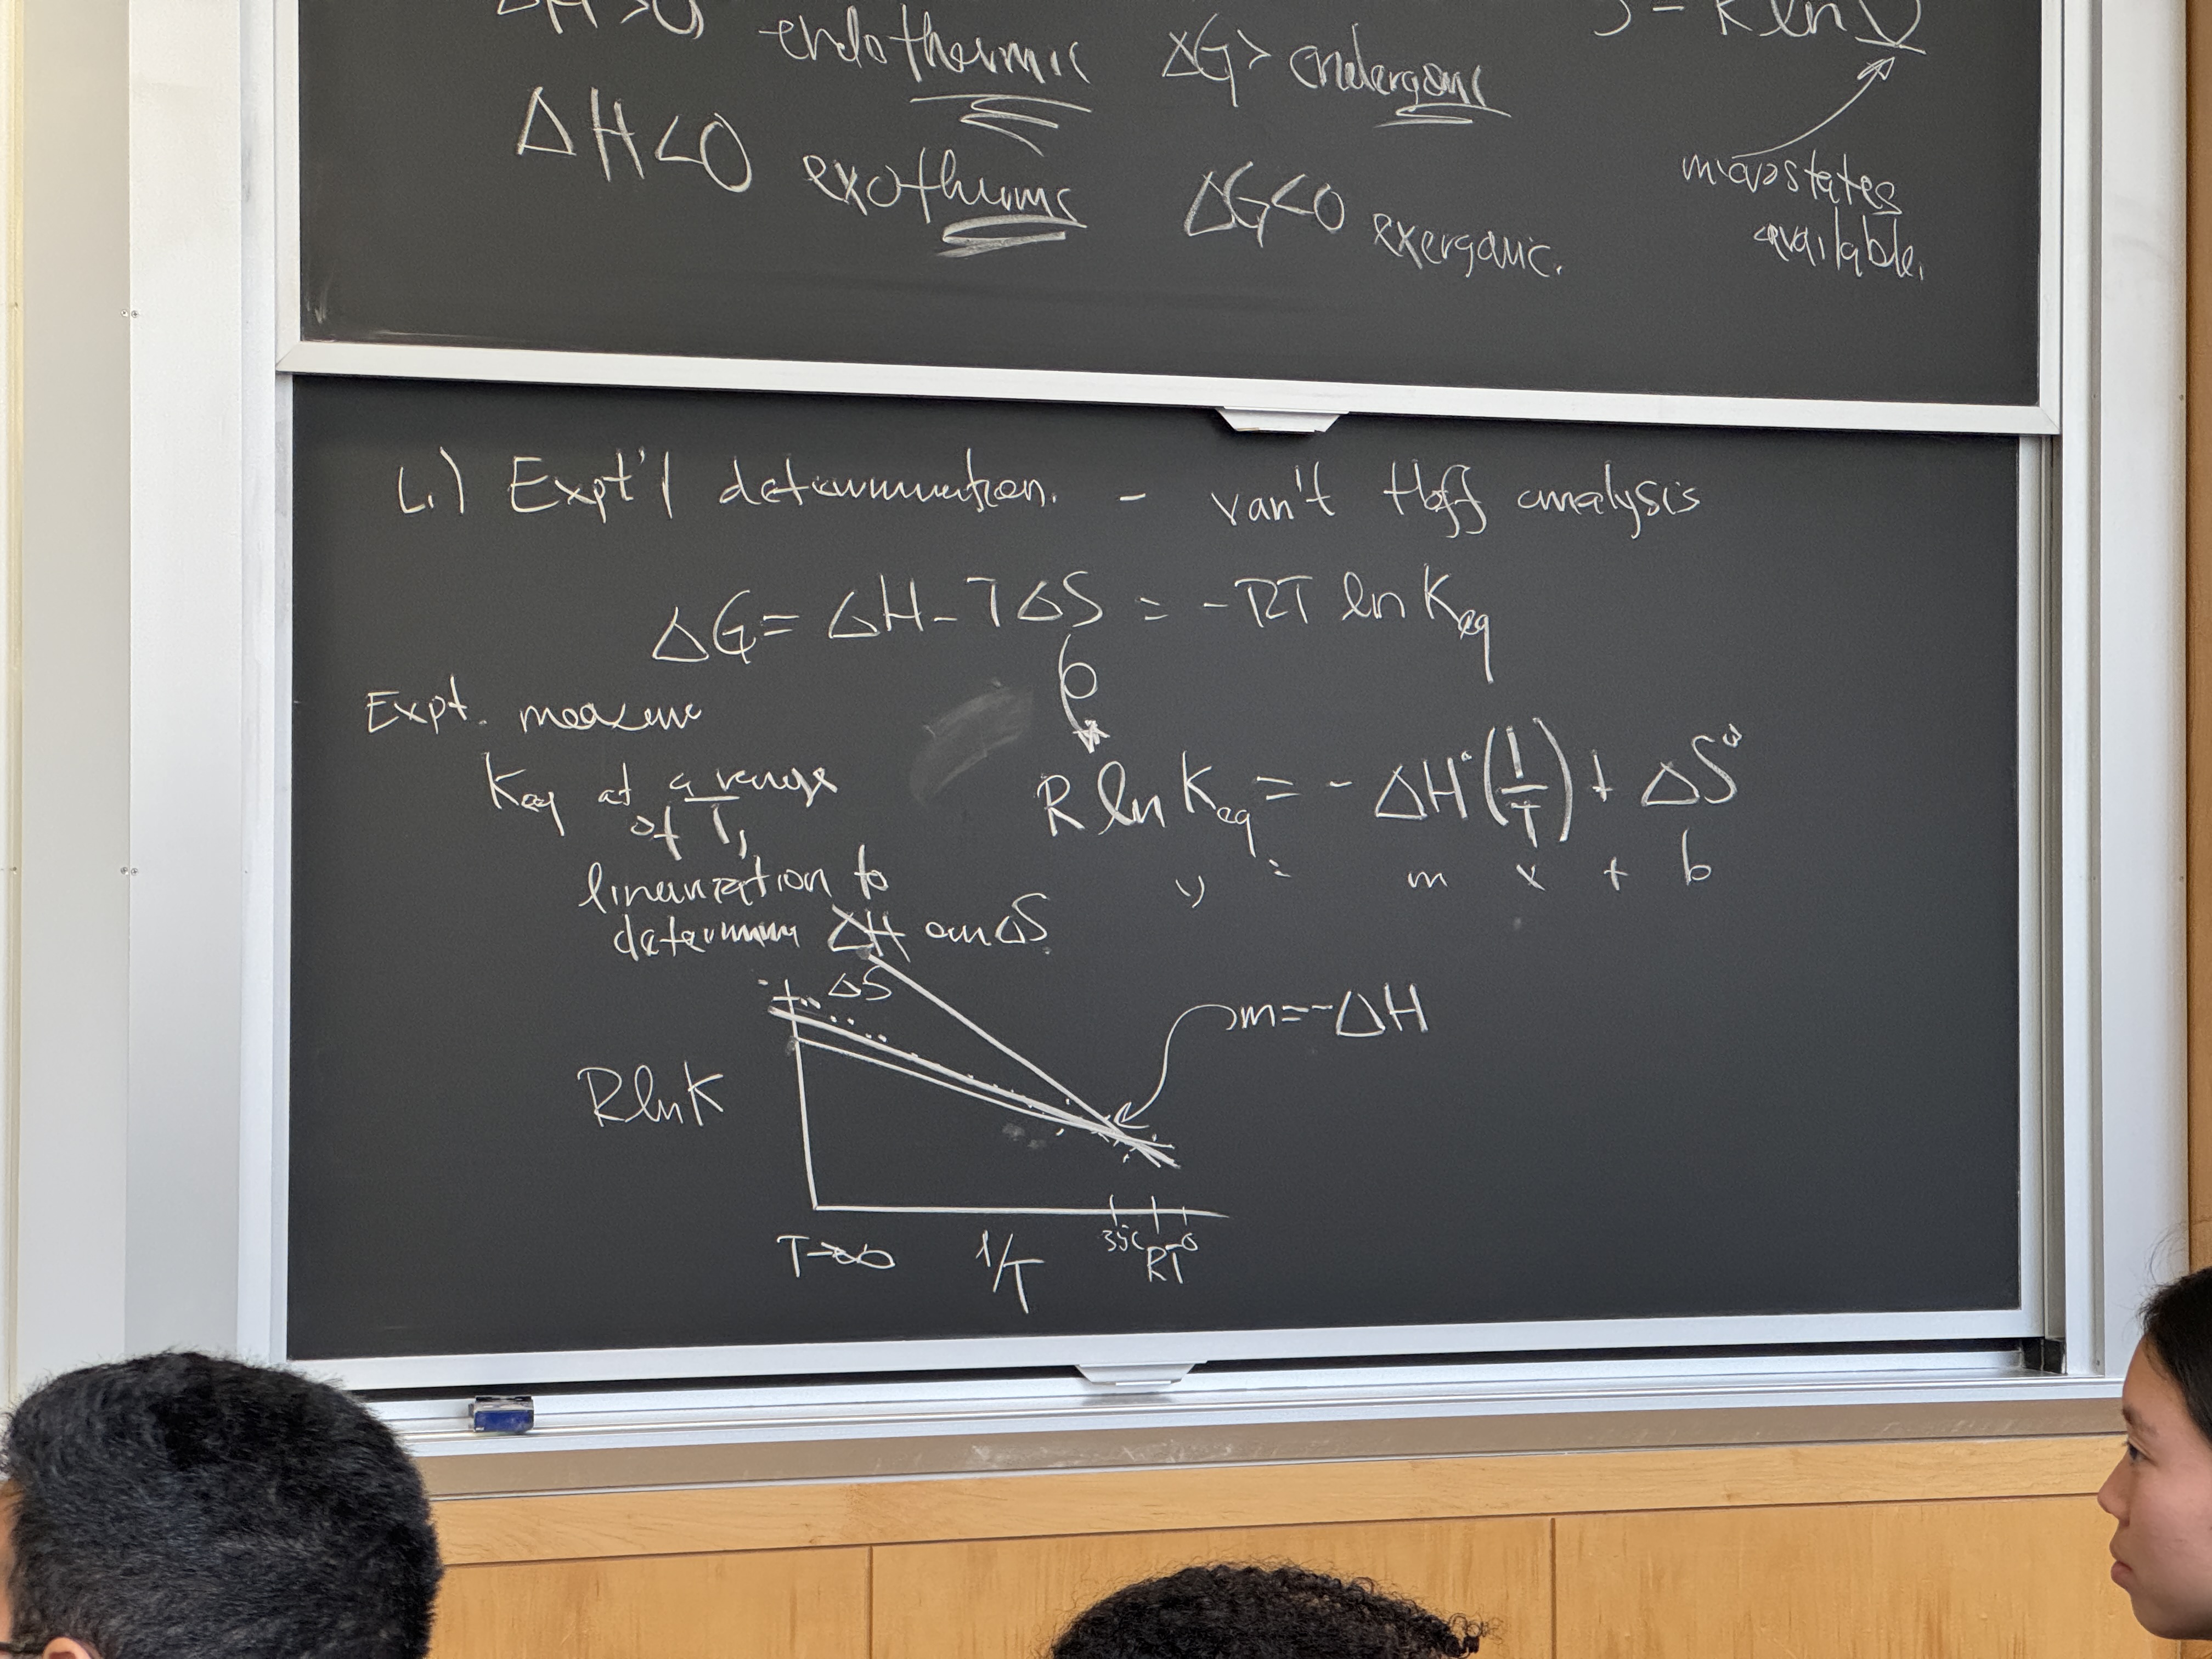 ΔH>0 endothermic ΔG> endergonic
S = R ln
ΔH<0 exothermic ΔG<0 exergonic.
microstates
available.
i.) Expt'l determination. - van't Hoff analysis
ΔG = ΔH - TΔS = -RT ln Keq
Expt. measure
Keq at a range
of T,
linearization to
determine ΔH and ΔS
R ln Keq = - ΔH°(1/T) + ΔS°
y = m x + b
ΔS
m = -ΔH
R ln K
35C RT
T→∞ 1/T